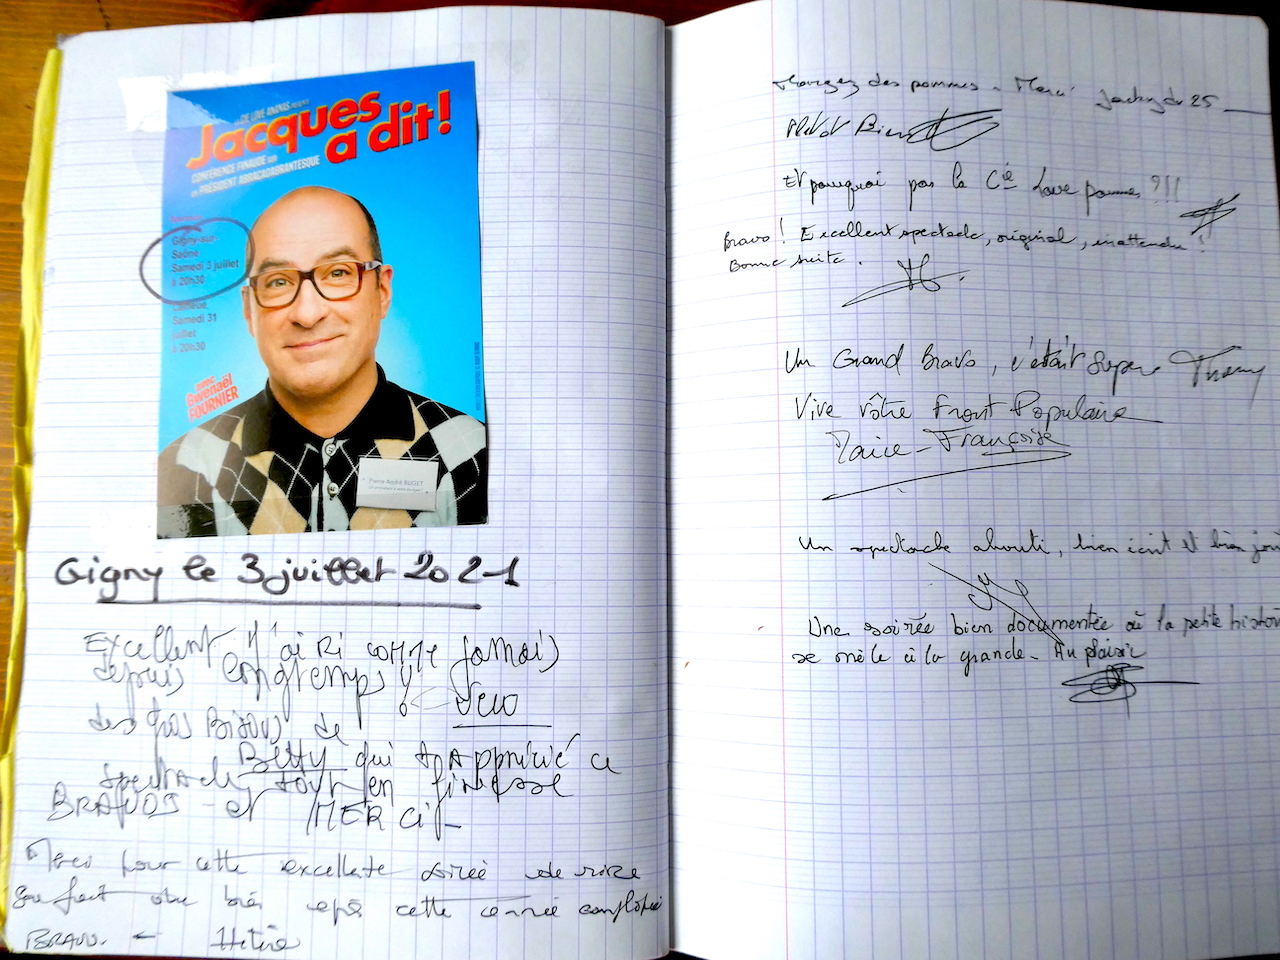 DE LOVE ANANAS
Jacques
a dit!
CONFÉRENCE FINAUDE sur
un PRÉSIDENT ABRACADABRANTESQUE
Gigny-sur-
Saône
Samedi 3 juillet
à 20h30
Samedi 31
juillet
à 20h30
avec
Gwenaël
FOURNIER
Pierre André BUGET
Gigny le 3 juillet 2021
EXCELLENT J'ai Ri comme jamais
depuis longtemps
des gros Bisous de
Betty qui a Apprécié ce
spectacle tout en finesse
BRAVOS et MERCI
Merci pour cette excellente soirée de rire
ça fait bien après cette année compliquée
BRAVO.
Mangez des pommes - Merci Jacky du 25
Et pourquoi pas la Cie Love pommes ?!!
Bravo ! Excellent spectacle, original, inattendu !
Bonne suite.
Un Grand Bravo, c'était super Thierry
Vive vôtre Front Populaire
Marie-Françoise
Un spectacle abouti, bien écrit et bien joué
Une soirée bien documentée où la petite histoi
se mêle à la grande. Au plaisir